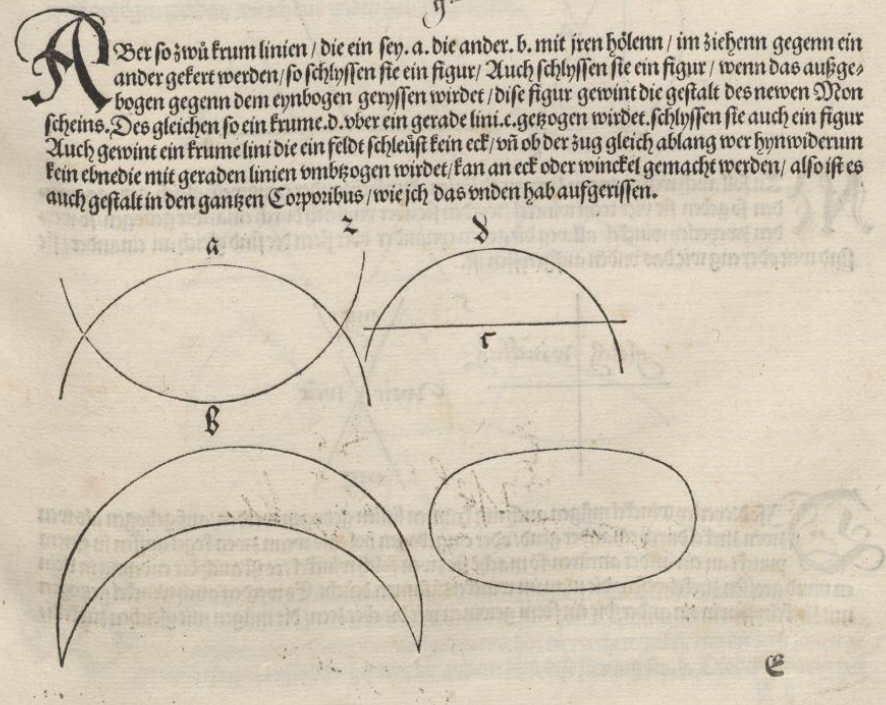 ABer so zwů krum linien / die ein sey. a. die ander. b. mit jren hölenn / im ziehenn gegenn ein
ander gekert werden / so schlyssen sie ein figur / Auch schlyssen sie ein figur / wenn das außge⸗
bogen gegenn dem eynbogen geryssen wirdet / dise figur gewint die gestalt des newen Mon
scheins. Des gleichen so ein krume .d. vber ein gerade lini .c. getzogen wirdet. schlyssen sie auch ein figur
Auch gewint ein krume lini die ein feldt schleüst kein eck / vñ ob der zug gleich ablang wer hynwiderum
kein ebne die mit geraden linien vmbtzogen wirdet / kan an eck oder winckel gemacht werden / also ist es
auch gestalt in den gantzen Corporibus / wie jch das vnden hab aufgerissen.
z
a d
c
b
E